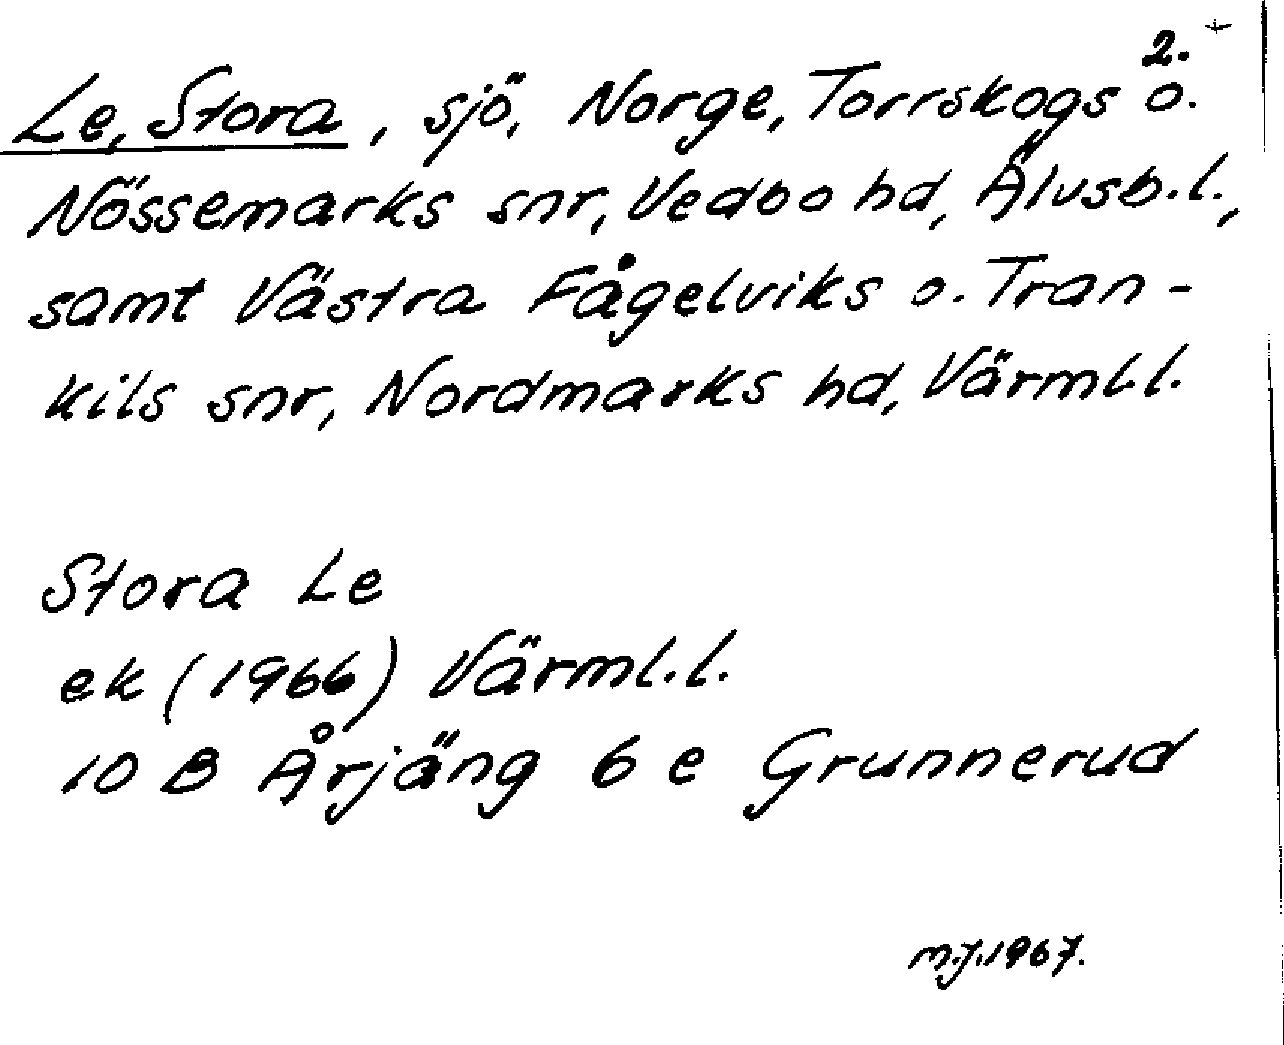 2. +
Le, Stora, sjö, Norge, Torrskogs o.
Nössemarks snr, Vedbo hd, Älvsb.l.,
samt Västra Fågelviks o. Tran-
kils snr, Nordmarks hd, Värml.l.
Stora Le
ek (1966) Värml.l.
10 B Årjäng 6 e Grunnerud
M.J.1967.